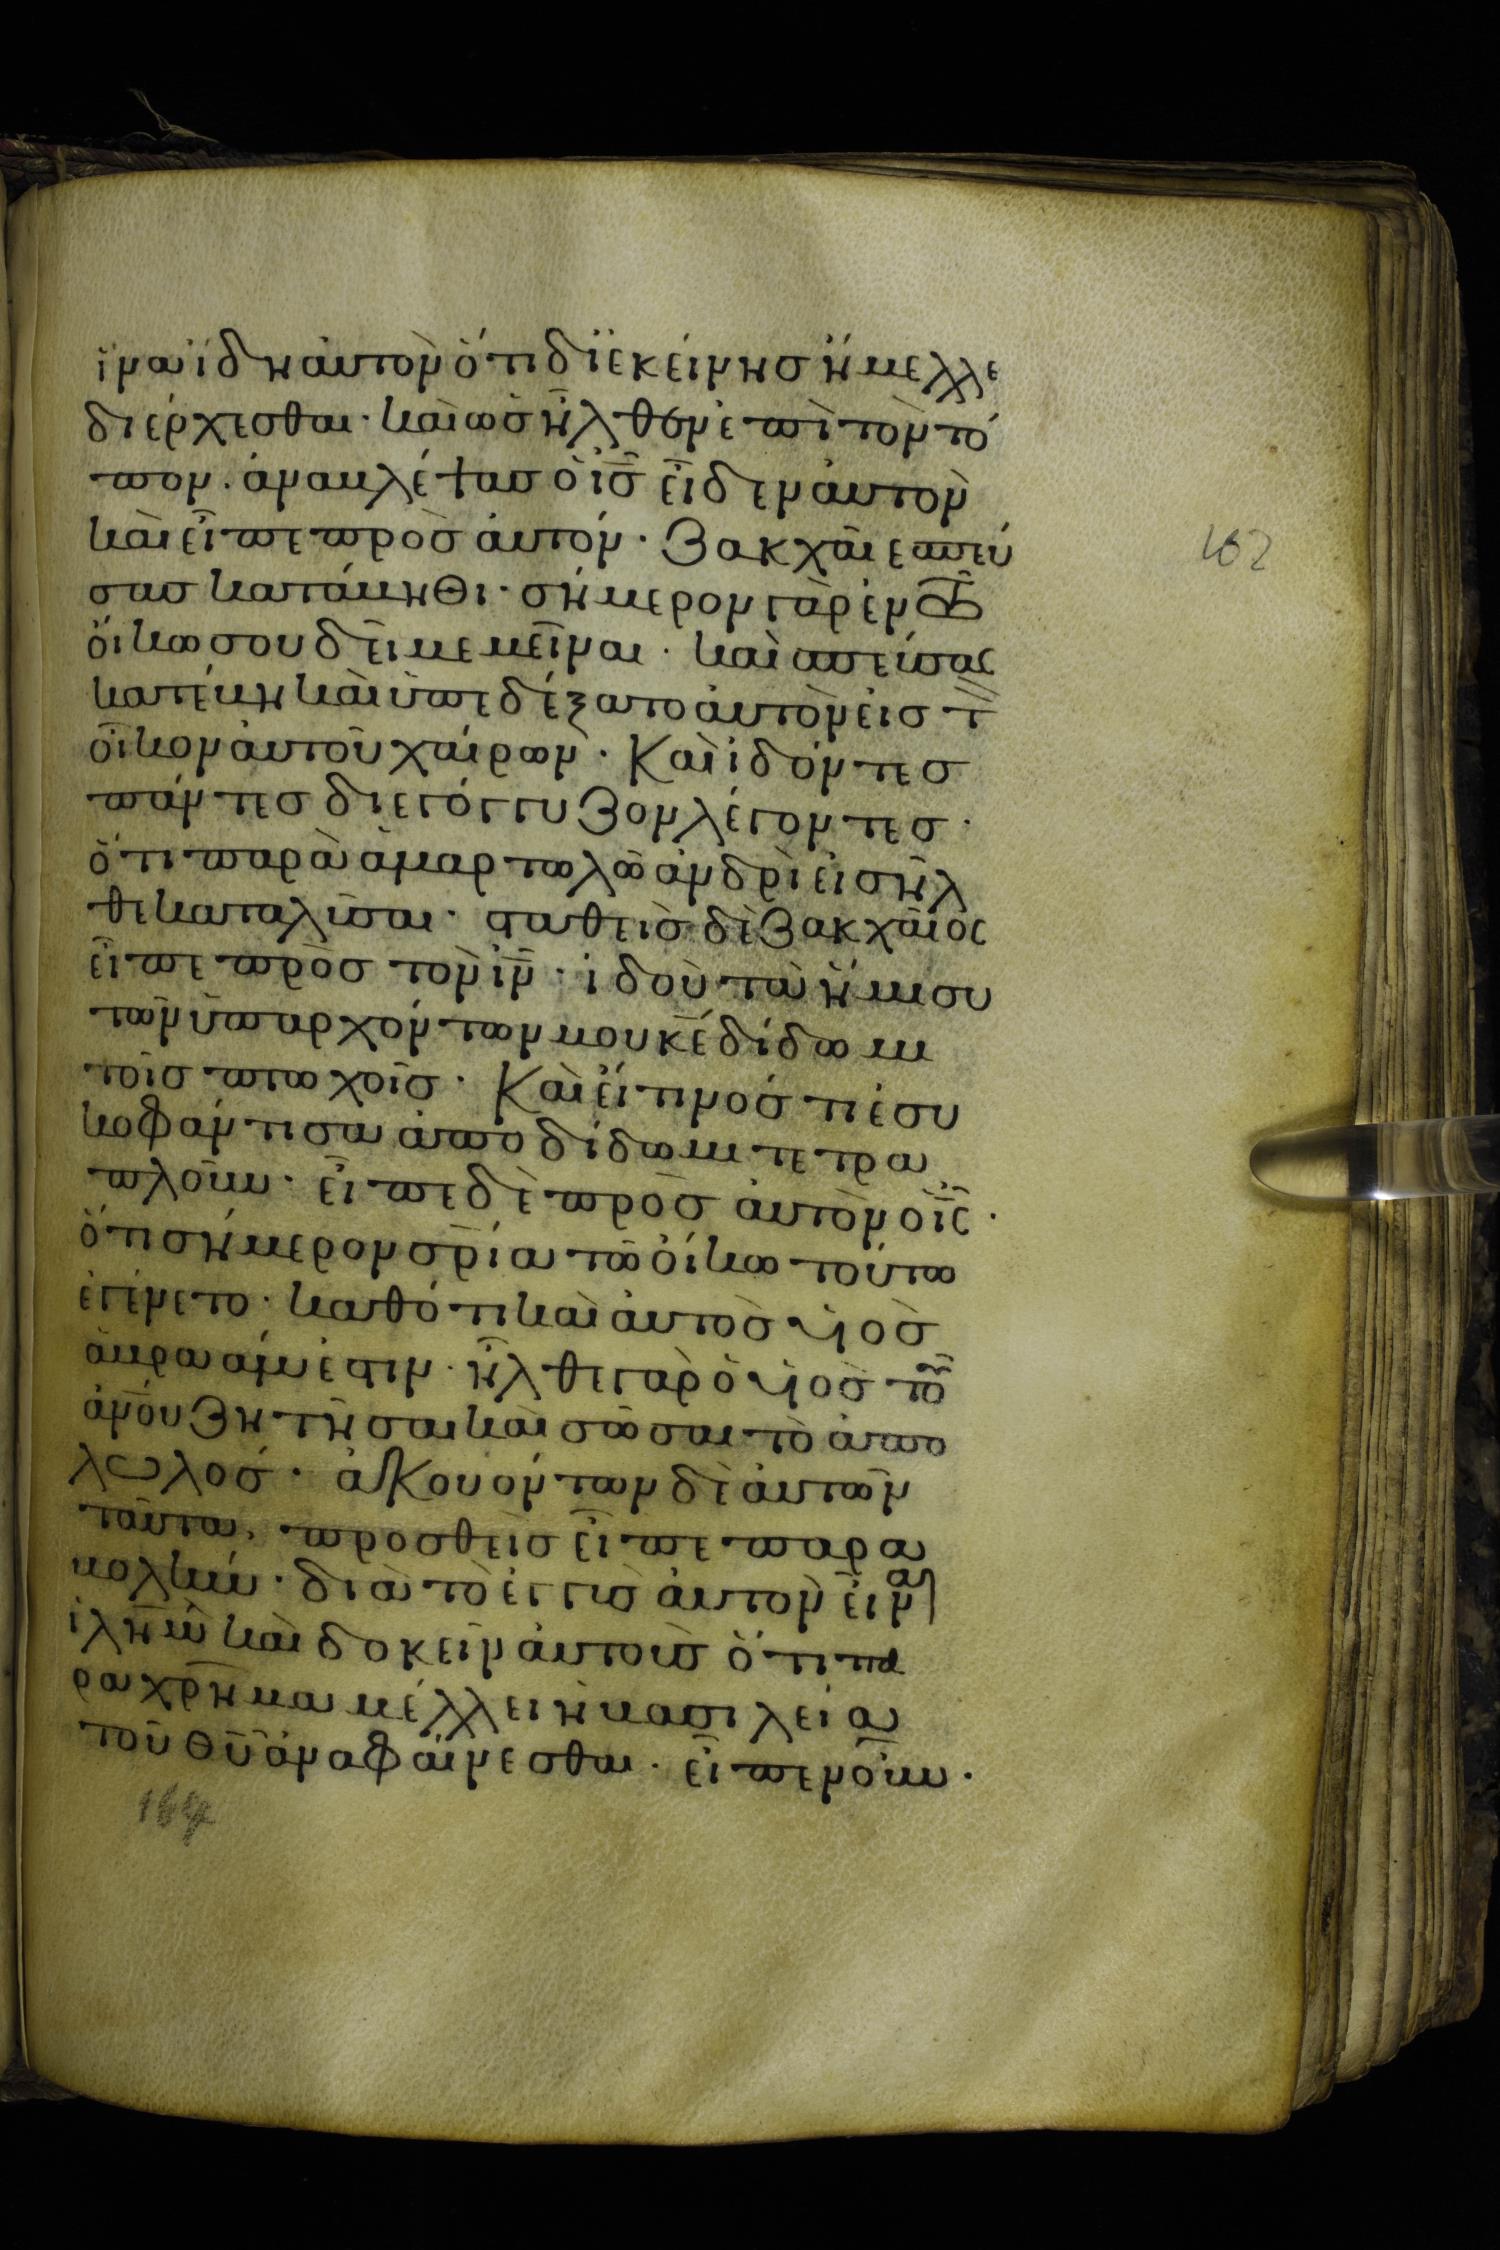 ἵνα ἴδη αὐτὸν ὅτι δι' ἐκείνησ ἤμελλε
διέρχεσθαι· καὶ ὡσ ἦλθον ἐπὶ τὸν τό
πον. ἀναβλέψασ ὁ ισ εἶδεν αὐτὸν
καὶ εἶπε πρὸσ αὐτόν· Ζακχαῖε σπεύ
σασ κατάβηθι· σήμερον γὰρ ἐν τῶ
οἴκω σου δεῖ με μεῖναι· καὶ σπεύσας
κατέβη καὶ ὑπεδέξατο αὐτὸν εἰσ τ
οἶκον αὐτοῦ χαίρων· Καὶ ἰδόντεσ
πάντεσ διεγόγγυζον λέγοντεσ·
ὅτι παρὰ ἁμαρτωλῶ ἀνδρὶ εἰσῆλ
θε καταλῦσαι· σταθεὶσ δὲ Ζακχαῖος
εἶπε πρὸσ τὸν ιν· ἰδοὺ τὰ ἥμισυ
τῶν ὑπαρχόντων μου κε δίδωμι
τοῖσ πτωχοῖσ· Καὶ εἴ τινόσ τι ἐσυ
κοφάντισα ἀποδίδωμι τετρα
πλοῦν· εἶπε δὲ πρὸσ αὐτὸν ὁ ις·
ὅτι σήμερον σρία τῶ οἴκω τούτω
ἐγένετο· καθότι καὶ αὐτὸσ υἱὸσ
ἀβραάμ ἐστιν· ἦλθε γὰρ ὁ υἱὸσ τοῦ
ἀνου ζητῆσαι καὶ σῶσαι τὸ ἀπο
λωλοσ· ἀκουόντων δὲ αὐτῶν
ταῦτα, προσθεὶσ εἶπε παρα
βολὴν· διὰ τὸ ἐγγὺσ αὐτὸν εἶναι
ιλημ καὶ δοκεῖν αὐτοὺσ ὅτι πα
ραχρῆμα μέλλει ἡ βασιλεία
τοῦ θυ ἀναφαίνεσθαι· εἶπεν οὖν·
162
164